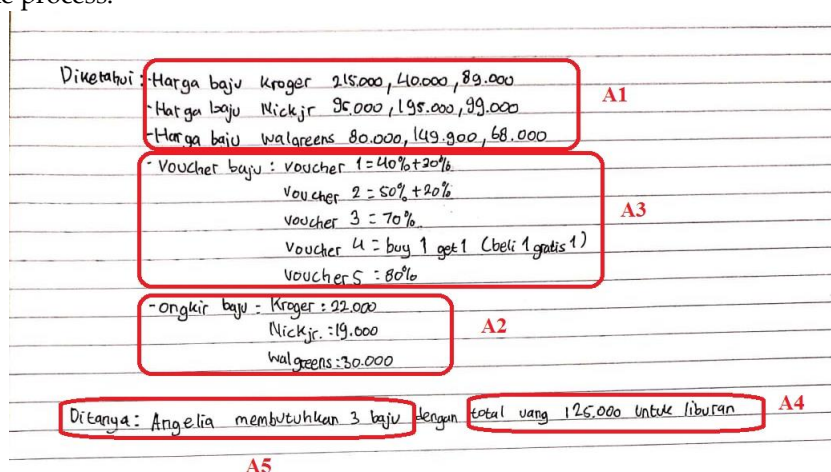 e process.
Diketahui : -Harga baju Kroger 215.000, 40.000, 89.000
A1
-Harga baju Nickjr 95.000, 195.000, 99.000
-Harga baju Walgreens 80.000, 149.900, 68.000
- Voucher baju : voucher 1 = 40% + 20%
voucher 2 = 50% + 20%
A3
voucher 3 = 70%
voucher 4 = buy 1 get 1 (beli 1 gratis 1)
voucher 5 = 80%
-ongkir baju = Kroger : 22.000
Nickjr. : 19.000
A2
walgreens : 30.000
Ditanya : Angelia membutuhkan 3 baju dengan total uang 125.000 untuk liburan
A4
A5